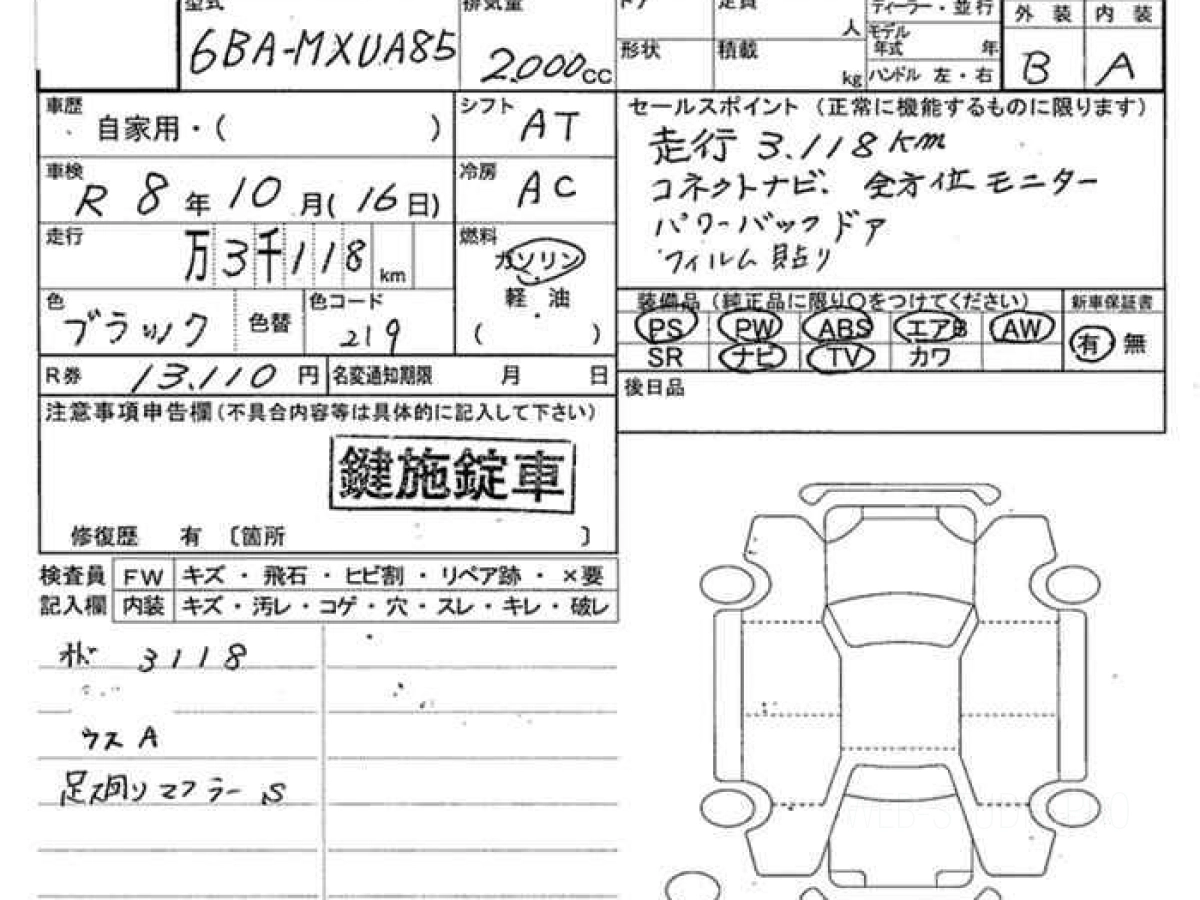 型式 排気量 ドア 定員 ディーラー・並行 外装 内装
6BA-MXUA85 2.000cc 人 モデル年式 年 B A
形状 積載 kg ハンドル 左・右
車歴 自家用・( ) シフト AT
セールスポイント（正常に機能するものに限ります）
走行 3.118km
コネクトナビ. 全方位モニター
パワーバックドア
フィルム貼り
車検 R 8年10月(16日) 冷房 AC
走行 万3千118km 燃料 ガソリン 軽油 ( )
色 ブラック 色替 色コード 219
装備品（純正品に限り○をつけてください） 新車保証書
PS PW ABS エアB AW 有 無
SR ナビ TV カワ
R券 13.110円 名変通知期限 月 日
後日品
注意事項申告欄(不具合内容等は具体的に記入して下さい)
鍵施錠車
修復歴 有 〔箇所 〕
検査員 FW キズ・飛石・ヒビ割・リペア跡・×要
記入欄 内装 キズ・汚レ・コゲ・穴・スレ・キレ・破レ
オド 3118
ウスA
足廻りマフラーS